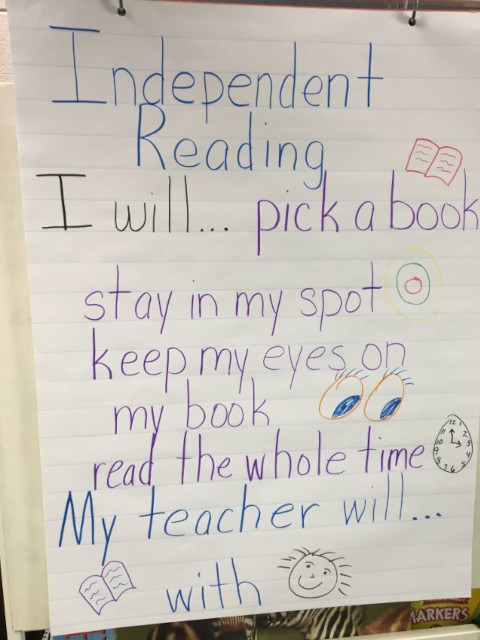 Independent
Reading
I will... pick a book
stay in my spot
keep my eyes on
my book
read the whole time
My teacher will...
with
MARKERS